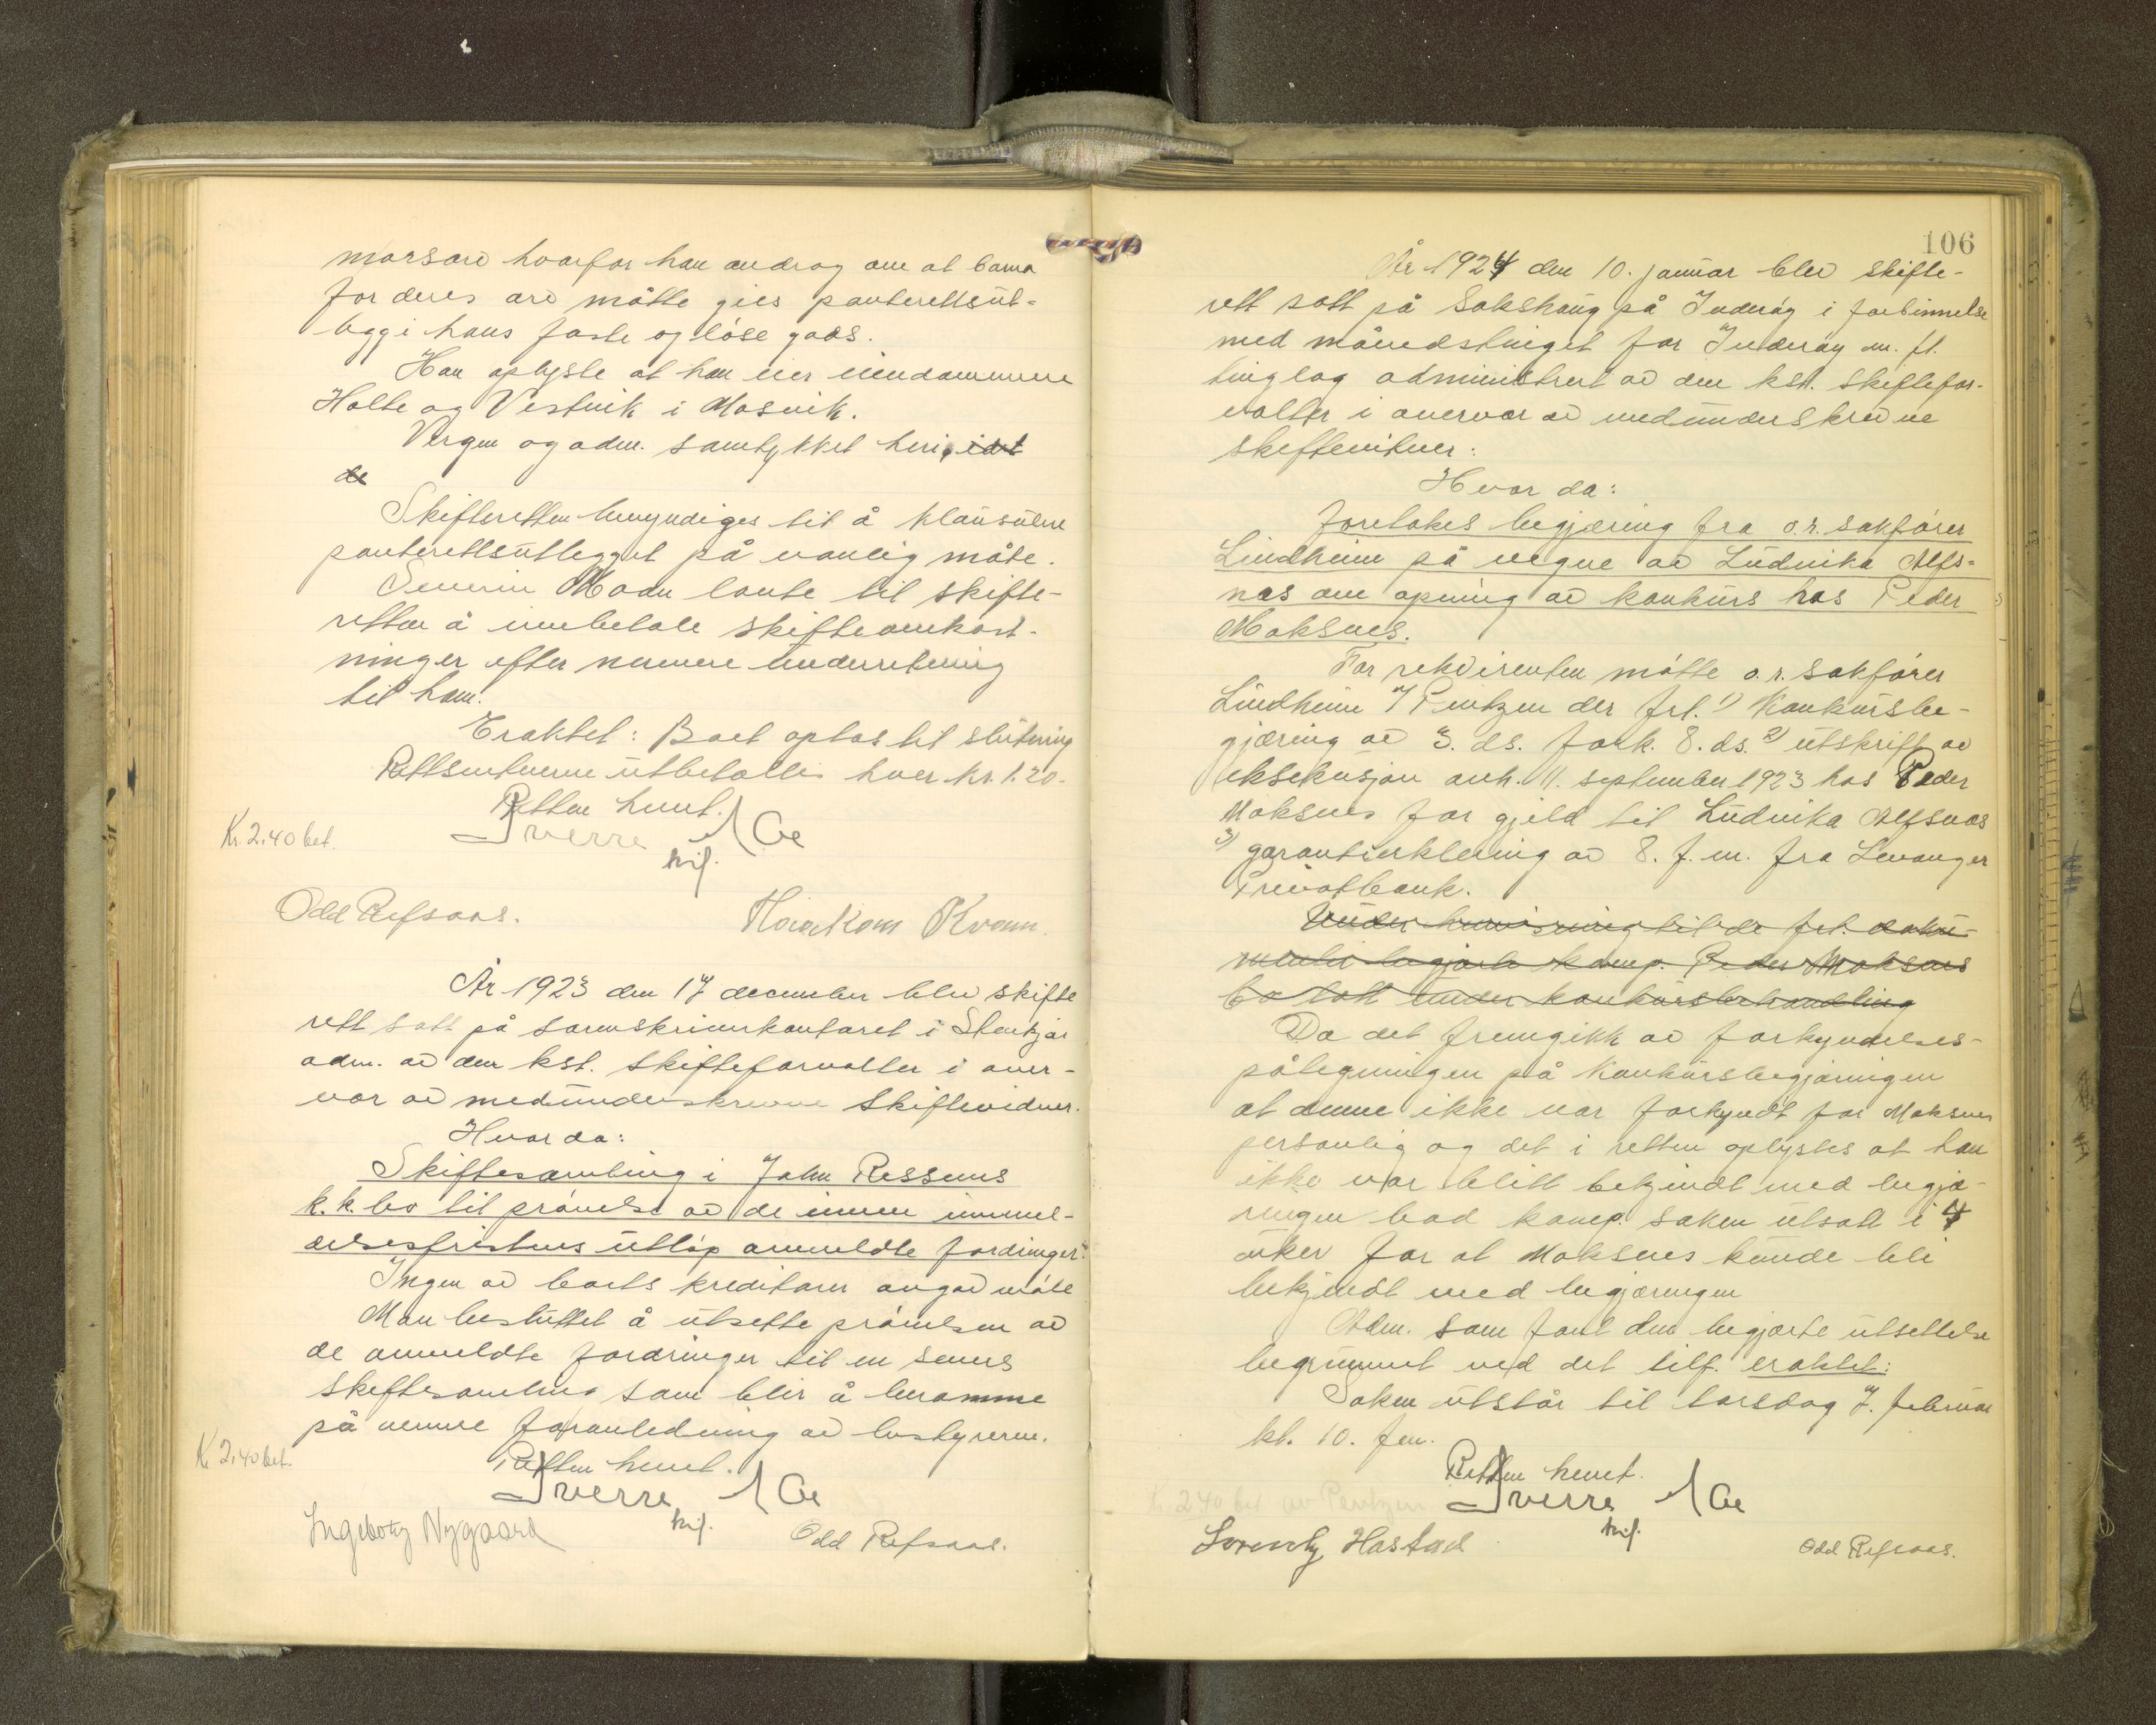 morsarv hvorfor han androg om at barna
for deres arv måtte gies panterettsut-
legg i hans faste og løse gods.
Han oplyste at han eier eiendommene
Holte og Vestvik i Mosvik.
Vergen og adm. samtykket heri, idet
de
Skifteretten bemyndiges til å klausulere
panterettsutlegget på vanlig måte.
Severin Moan lovte til skifte-
retten å innbetale skifteomkost-
ninger efter nærmere underretning
til ham.
Eraktet: Boet optas til slutning
Rettsvitnerne utbetaltes hver kr. 1.20.
Retten hevet.
Kr. 2.40 bet.
Sverre
ksf.
Odd Refsaas. Haakon Kvam.
År 1923 den 17 december blev skifte
rett satt på sorenskriverkontoret i Steinkjær
adm. av den kst. skifteforvalter i over-
vær av medunderskrevne skiftevidner.
Hvor da:
Skiftesamling i John Ressems
k.k. bo til prøvelse av de innen innmel-
delsesfristens utløp anmeldte fordringer.
Ingen av boets kreditorer angav møte
Man besluttet å utsette prøvelsen av
de anmeldte fordringer til en senere
skiftesamling som blir å beramme
på nærmere foranledning av bostyreren.
Retten hevet.
K. 2.40 bet.
Sverre
ksf.
Ingeborg Nygaard Odd Refsaas.
106
År 1924 den 10. januar blev skifte-
rett satt på Sakshaug på Inderøy i forbinnelse
med månedstinget for Inderøy m. fl.
tinglag administrert av den kst. skiftefor-
valter i overvær av medunderskrevne
skiftevitner:
Hvor da:
Foretokes begjæring fra o.r. sakfører
Lindheim på vegne av Ludvika Alfs-
nes om åpning av konkurs hos Peder
Moksnes.
For rekvirenten møtte o.r. sakfører
Lindheim v/ Pentzen der frl. 1) Konkursbe-
gjæring av 3. ds. fork. 8. ds. 2) utskrift av
eksekusjon avh. 11. september 1923 hos Peder
Moksnes for gjeld til Ludvika Alfsnes
3) garantierklæring av 8. f. m. fra Levanger
Privatbank.
Under henvisning til de frl. doku-
menter begjærte komp. Peder Moksnes
bo tatt under konkursbehandling
Da det fremgikk av forkyndelses-
påtegningen på konkursbegjæringen
at denne ikke var forkyndt for Moksnes
personlig og det i retten oplystes at han
ikke var blitt bekjendt med begjæ-
ringen bad komp. saken utsatt i 4
uker for at Moksnes kunde bli
bekjendt med begjæringen
Adm. som fant den begjærte utsettelse
begrunnet ved det tilf. eraktet:
Saken utstår til torsdag 7. februar
kl. 10. fm.
Retten hevet.
Kr. 2.40 bet av Pentzen
Sverre
ksf.
Lorentz Hastad Odd Refsaas.